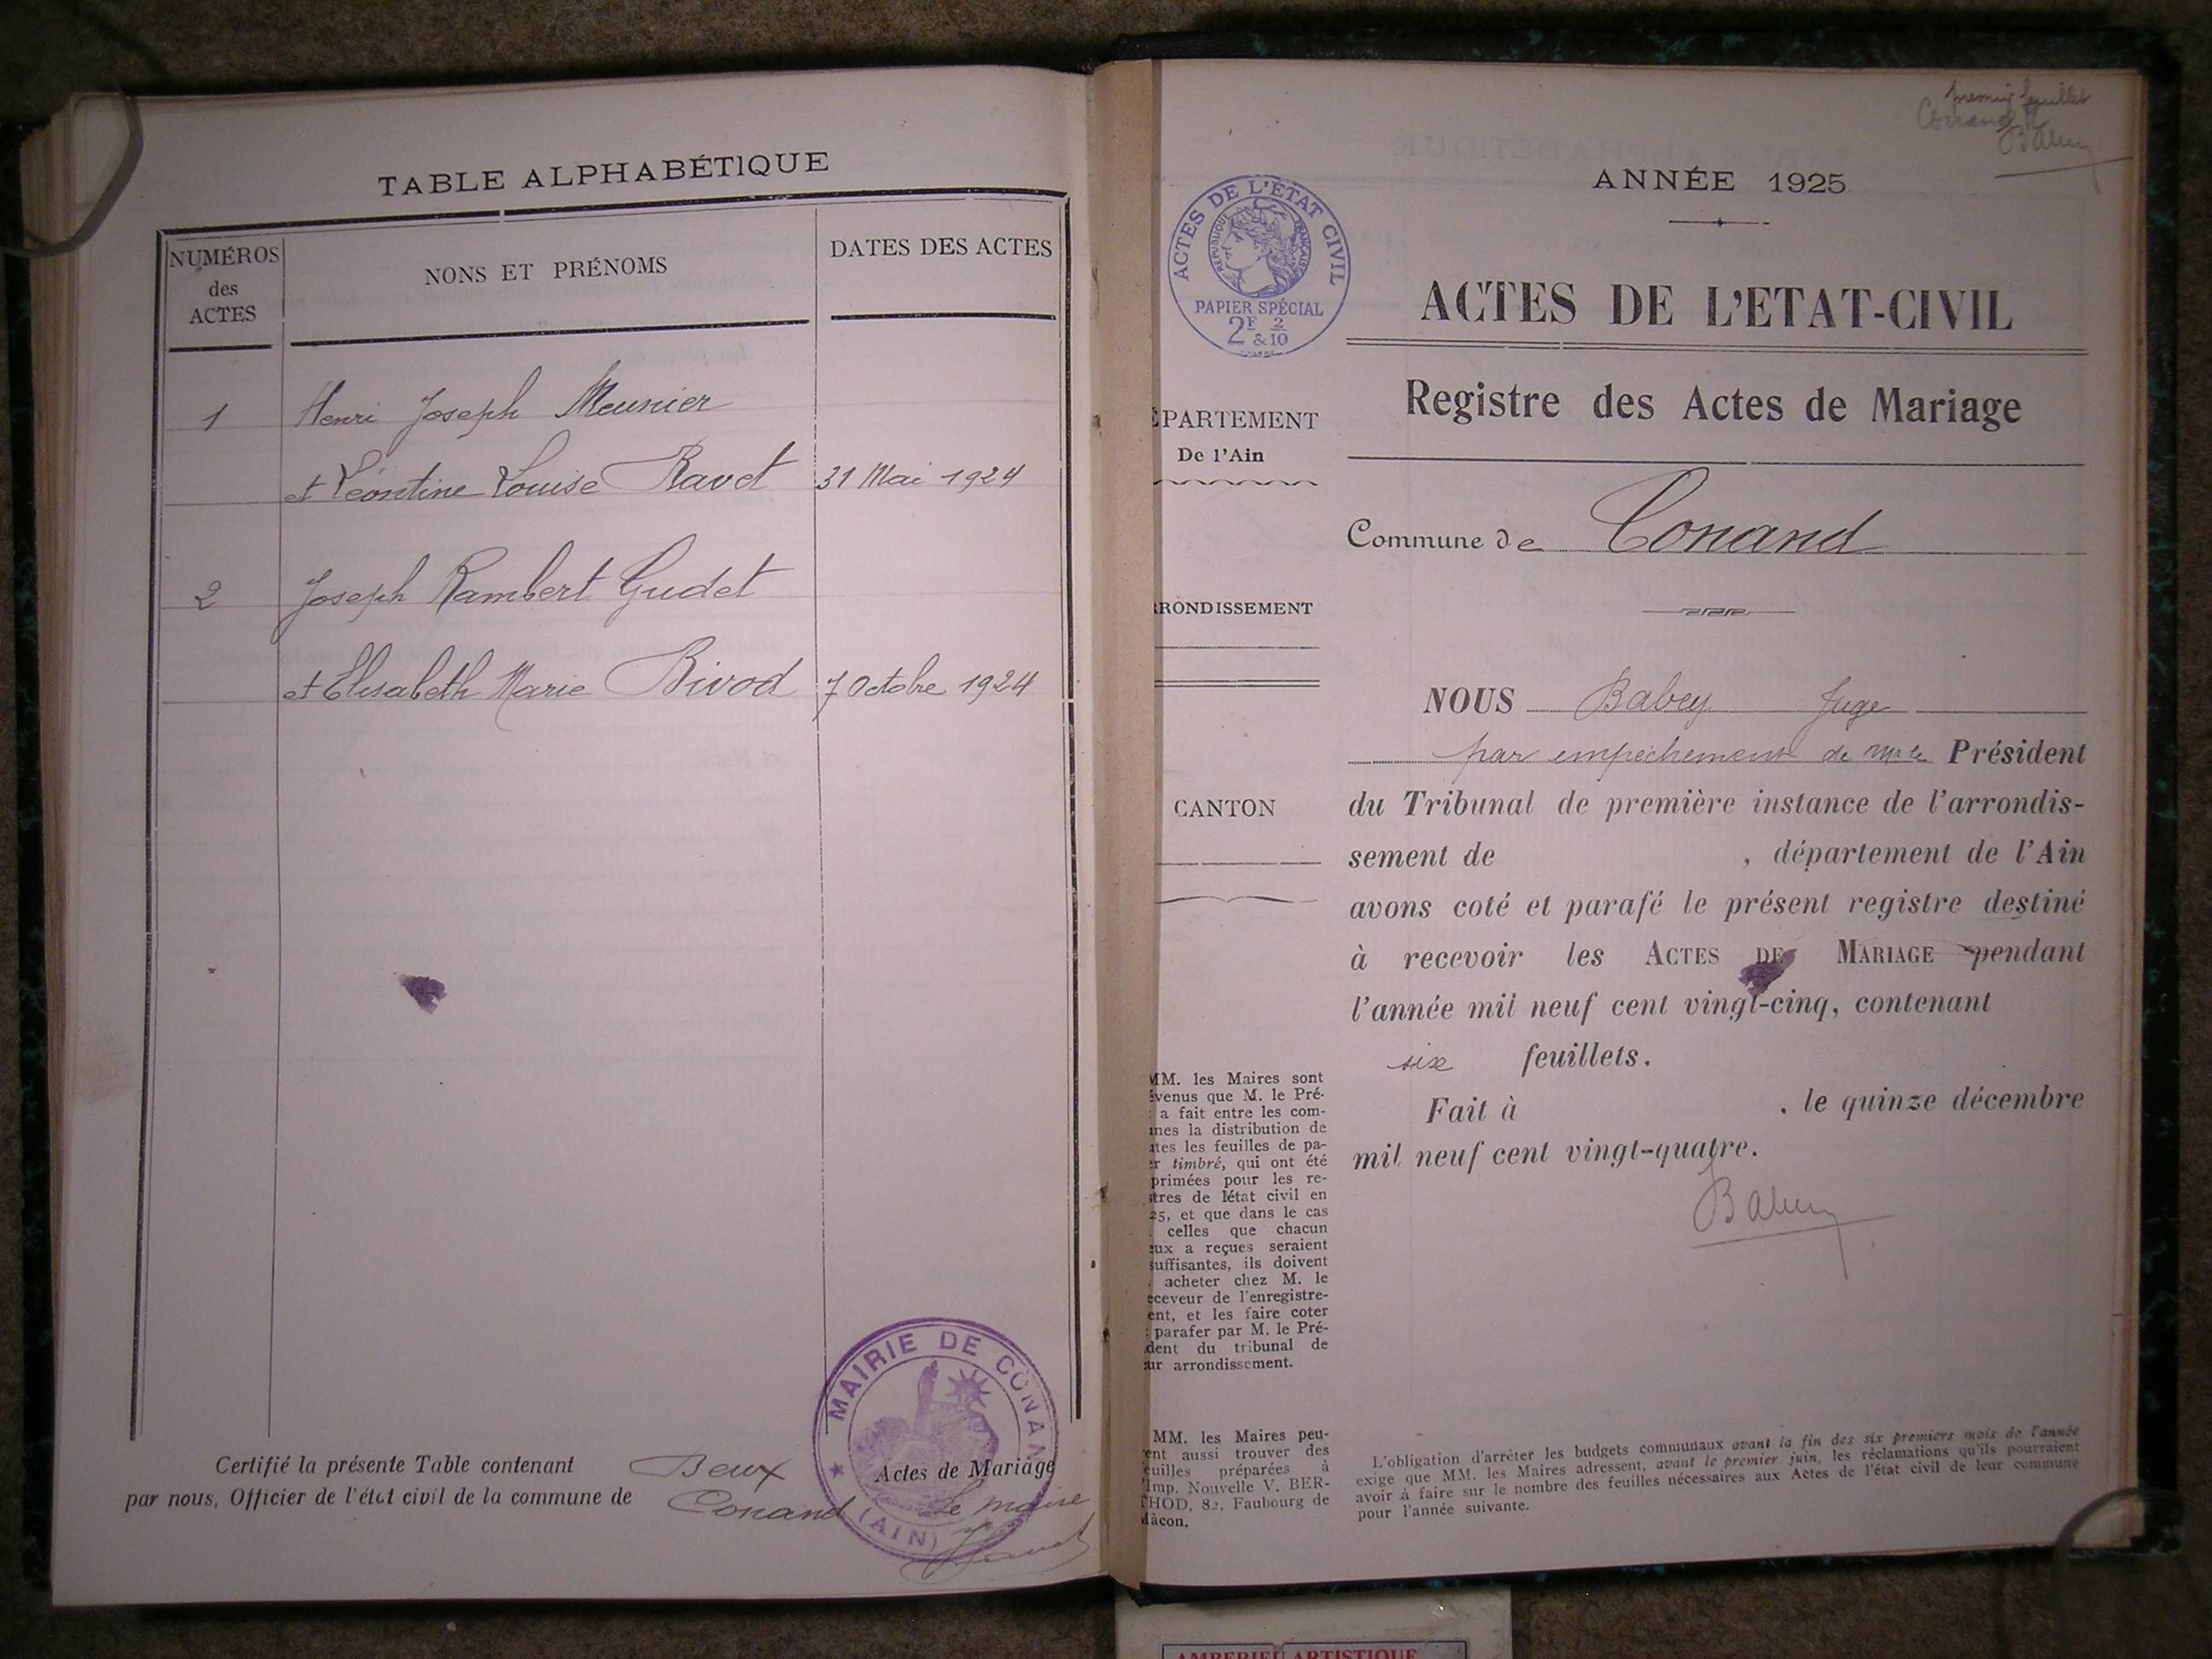 TABLE ALPHABÉTIQUE
NUMÉROS
des
ACTES
NONS ET PRÉNOMS
DATES DES ACTES
1 Henri Joseph Meunier
et Léontine Louise Ravet 31 Mai 1924
2 Joseph Rambert Gudet
et Elisabeth Marie Bivod 7 Octobre 1924
Certifié la présente Table contenant Deux Actes de Mariage
par nous, Officier de l'état civil de la commune de Conand Le maire
MAIRIE DE CONAN
(AIN)
premier feuillet
Conand
Babey
ANNÉE 1925
ACTES DE L'ÉTAT CIVIL
RÉPUBLIQUE FRANÇAISE
PAPIER SPÉCIAL
2F 2
&10
ACTES DE L'ETAT-CIVIL
Registre des Actes de Mariage
ÉPARTEMENT
De l'Ain
Commune de Conand
RRONDISSEMENT
CANTON
NOUS Babey Juge
par empêchement de Mr le Président
du Tribunal de première instance de l'arrondis-
sement de , département de l'Ain
avons coté et parafé le présent registre destiné
à recevoir les ACTES DE MARIAGE pendant
l'année mil neuf cent vingt-cinq, contenant
six feuillets.
Fait à , le quinze décembre
mil neuf cent vingt-quatre.
Babey
MM. les Maires sont
évenus que M. le Pré-
t a fait entre les com-
nes la distribution de
tes les feuilles de pa-
r timbré, qui ont été
primées pour les re-
stres de létat civil en
25, et que dans le cas
celles que chacun
eux a reçues seraient
suffisantes, ils doivent
acheter chez M. le
eceveur de l'enregistre-
ent, et les faire coter
parafer par M. le Pré-
dent du tribunal de
ur arrondissement.
MM. les Maires peu-
ent aussi trouver des
euilles préparées à
'Imp. Nouvelle V. BER-
THOD, 82, Faubourg de
Mâcon.
L'obligation d'arrêter les budgets communaux avant la fin des six premiers mois de l'année
exige que MM. les Maires adressent, avant le premier juin, les réclamations qu'ils pourraient
avoir à faire sur le nombre des feuilles nécessaires aux Actes de l'état civil de leur commune
pour l'année suivante.
AMBERIEU ARTISTIQUE